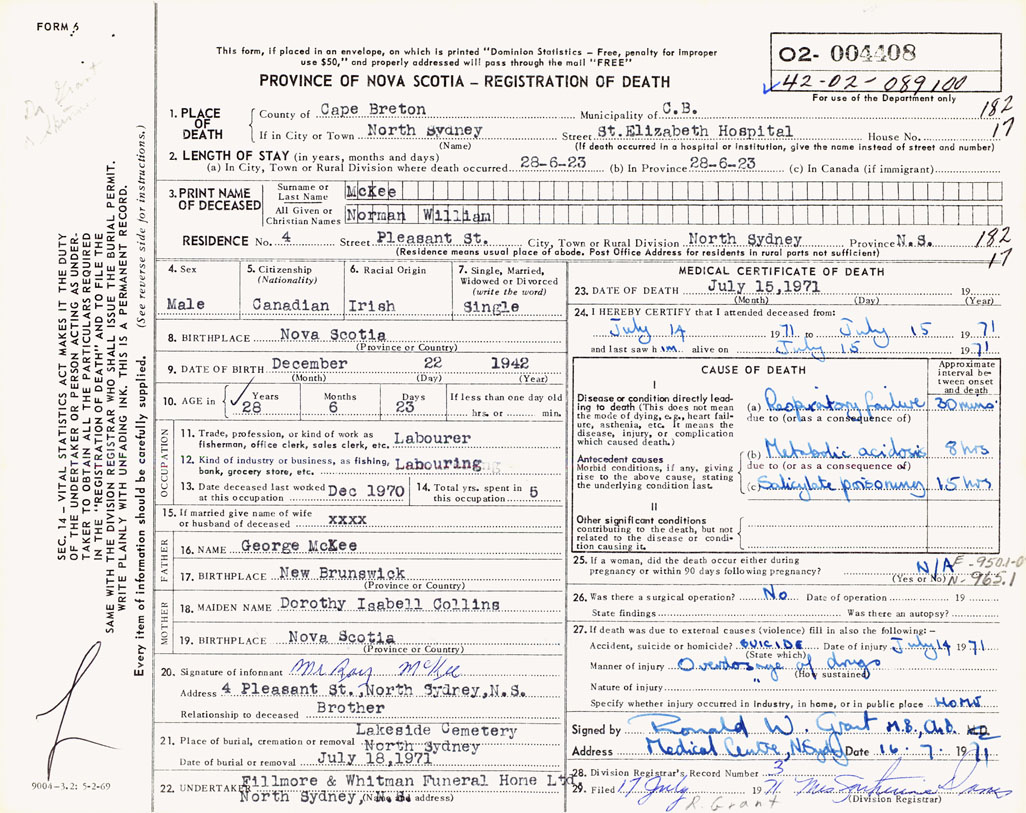 FORM 6
This form, if placed in an envelope, on which is printed "Dominion Statistics – Free, penalty for improper
use $50," and properly addressed will pass through the mail "FREE"
PROVINCE OF NOVA SCOTIA – REGISTRATION OF DEATH
02- 004408
42-02-089100
For use of the Department only
Dr Grant
SEC. 14 – VITAL STATISTICS ACT MAKES IT THE DUTY
OF THE UNDERTAKER OR PERSON ACTING AS UNDER-
TAKER TO OBTAIN ALL THE PARTICULARS REQUIRED
IN THE "REGISTRATION OF DEATH" AND TO FILE THE
SAME WITH THE DIVISION REGISTRAR WHO SHALL ISSUE THE BURIAL PERMIT.
WRITE PLAINLY WITH UNFADING INK. THIS IS A PERMANENT RECORD.
Every item of information should be carefully supplied. (See reverse side for instructions.)
9004-3.2: 5-2-69
1. PLACE OF DEATH
County of Cape Breton Municipality of C.B. 182
If in City or Town North Sydney Street St.Elizabeth Hospital House No. 17
(Name) (If death occurred in a hospital or institution, give the name instead of street and number)
2. LENGTH OF STAY (in years, months and days)
(a) In City, Town or Rural Division where death occurred 28-6-23 (b) In Province 28-6-23 (c) In Canada (if immigrant)
3. PRINT NAME OF DECEASED
Surname or Last Name McKee
All Given or Christian Names Norman William
RESIDENCE No. 4 Street Pleasant St. City, Town or Rural Division North Sydney Province N.S. 182
(Residence means usual place of abode. Post Office Address for residents in rural parts not sufficient) 17
4. Sex
Male
5. Citizenship
(Nationality)
Canadian
6. Racial Origin
Irish
7. Single, Married,
Widowed or Divorced
(write the word)
Single
8. BIRTHPLACE Nova Scotia
(Province or Country)
9. DATE OF BIRTH December 22 1942
(Month) (Day) (Year)
10. AGE in Years Months Days If less than one day old
28 6 23 hrs. or min.
OCCUPATION
11. Trade, profession, or kind of work as
fisherman, office clerk, sales clerk, etc. Labourer
12. Kind of industry or business, as fishing,
bank, grocery store, etc. Labouring
13. Date deceased last worked
at this occupation Dec 1970
14. Total yrs. spent in
this occupation 5
15. If married give name of wife
or husband of deceased xxxx
FATHER
16. NAME George McKee
17. BIRTHPLACE New Brunswick
(Province or Country)
MOTHER
18. MAIDEN NAME Dorothy Isabell Collins
19. BIRTHPLACE Nova Scotia
(Province or Country)
20. Signature of informant Mr Ray McKee
Address 4 Pleasant St.,North Sydney,N.S.
Relationship to deceased Brother
Lakeside Cemetery
21. Place of burial, cremation or removal North Sydney
Date of burial or removal July 18,1971
22. UNDERTAKER Fillmore & Whitman Funeral Home Ltd.
North Sydney, N.S.
(Name and address)
MEDICAL CERTIFICATE OF DEATH
23. DATE OF DEATH July 15,1971 19
(Month) (Day) (Year)
24. I HEREBY CERTIFY that I attended deceased from:
July 14 1971 to July 15 1971
and last saw him alive on July 15 1971
CAUSE OF DEATH
Approximate
interval be-
tween onset
and death
I
Disease or condition directly lead-
ing to death (This does not mean
the mode of dying, e.g., heart fail-
ure, asthenia, etc. It means the
disease, injury, or complication
which caused death.)
(a) Respiratory failure 30 mins
due to (or as a consequence of)
Antecedent causes
Morbid conditions, if any, giving
rise to the above cause, stating
the underlying condition last.
(b) Metabolic acidosis 8 hrs
due to (or as a consequence of)
(c) Salicylate poisoning 15 hrs
II
Other significant conditions
contributing to the death, but not
related to the disease or condi-
tion causing it.
25. If a woman, did the death occur either during
pregnancy or within 90 days following pregnancy? N/A
(Yes or No)
E-950.1-0
N-965.1
26. Was there a surgical operation? No Date of operation 19
State findings Was there an autopsy?
27. If death was due to external causes (violence) fill in also the following: –
Accident, suicide or homicide? SUICIDE Date of injury July 14 1971
(State which)
Manner of injury Overdosage of drugs
(How sustained)
Nature of injury "
Specify whether injury occurred in industry, in home, or in public place HOME
Signed by Ronald W. Grant M.B., Ch.B. M.D.
Address Medical Centre, N Sydney Date 16 · 7 · 1971
28. Division Registrar's Record Number 3
29. Filed 17 July 1971
(Division Registrar)
R. Grant